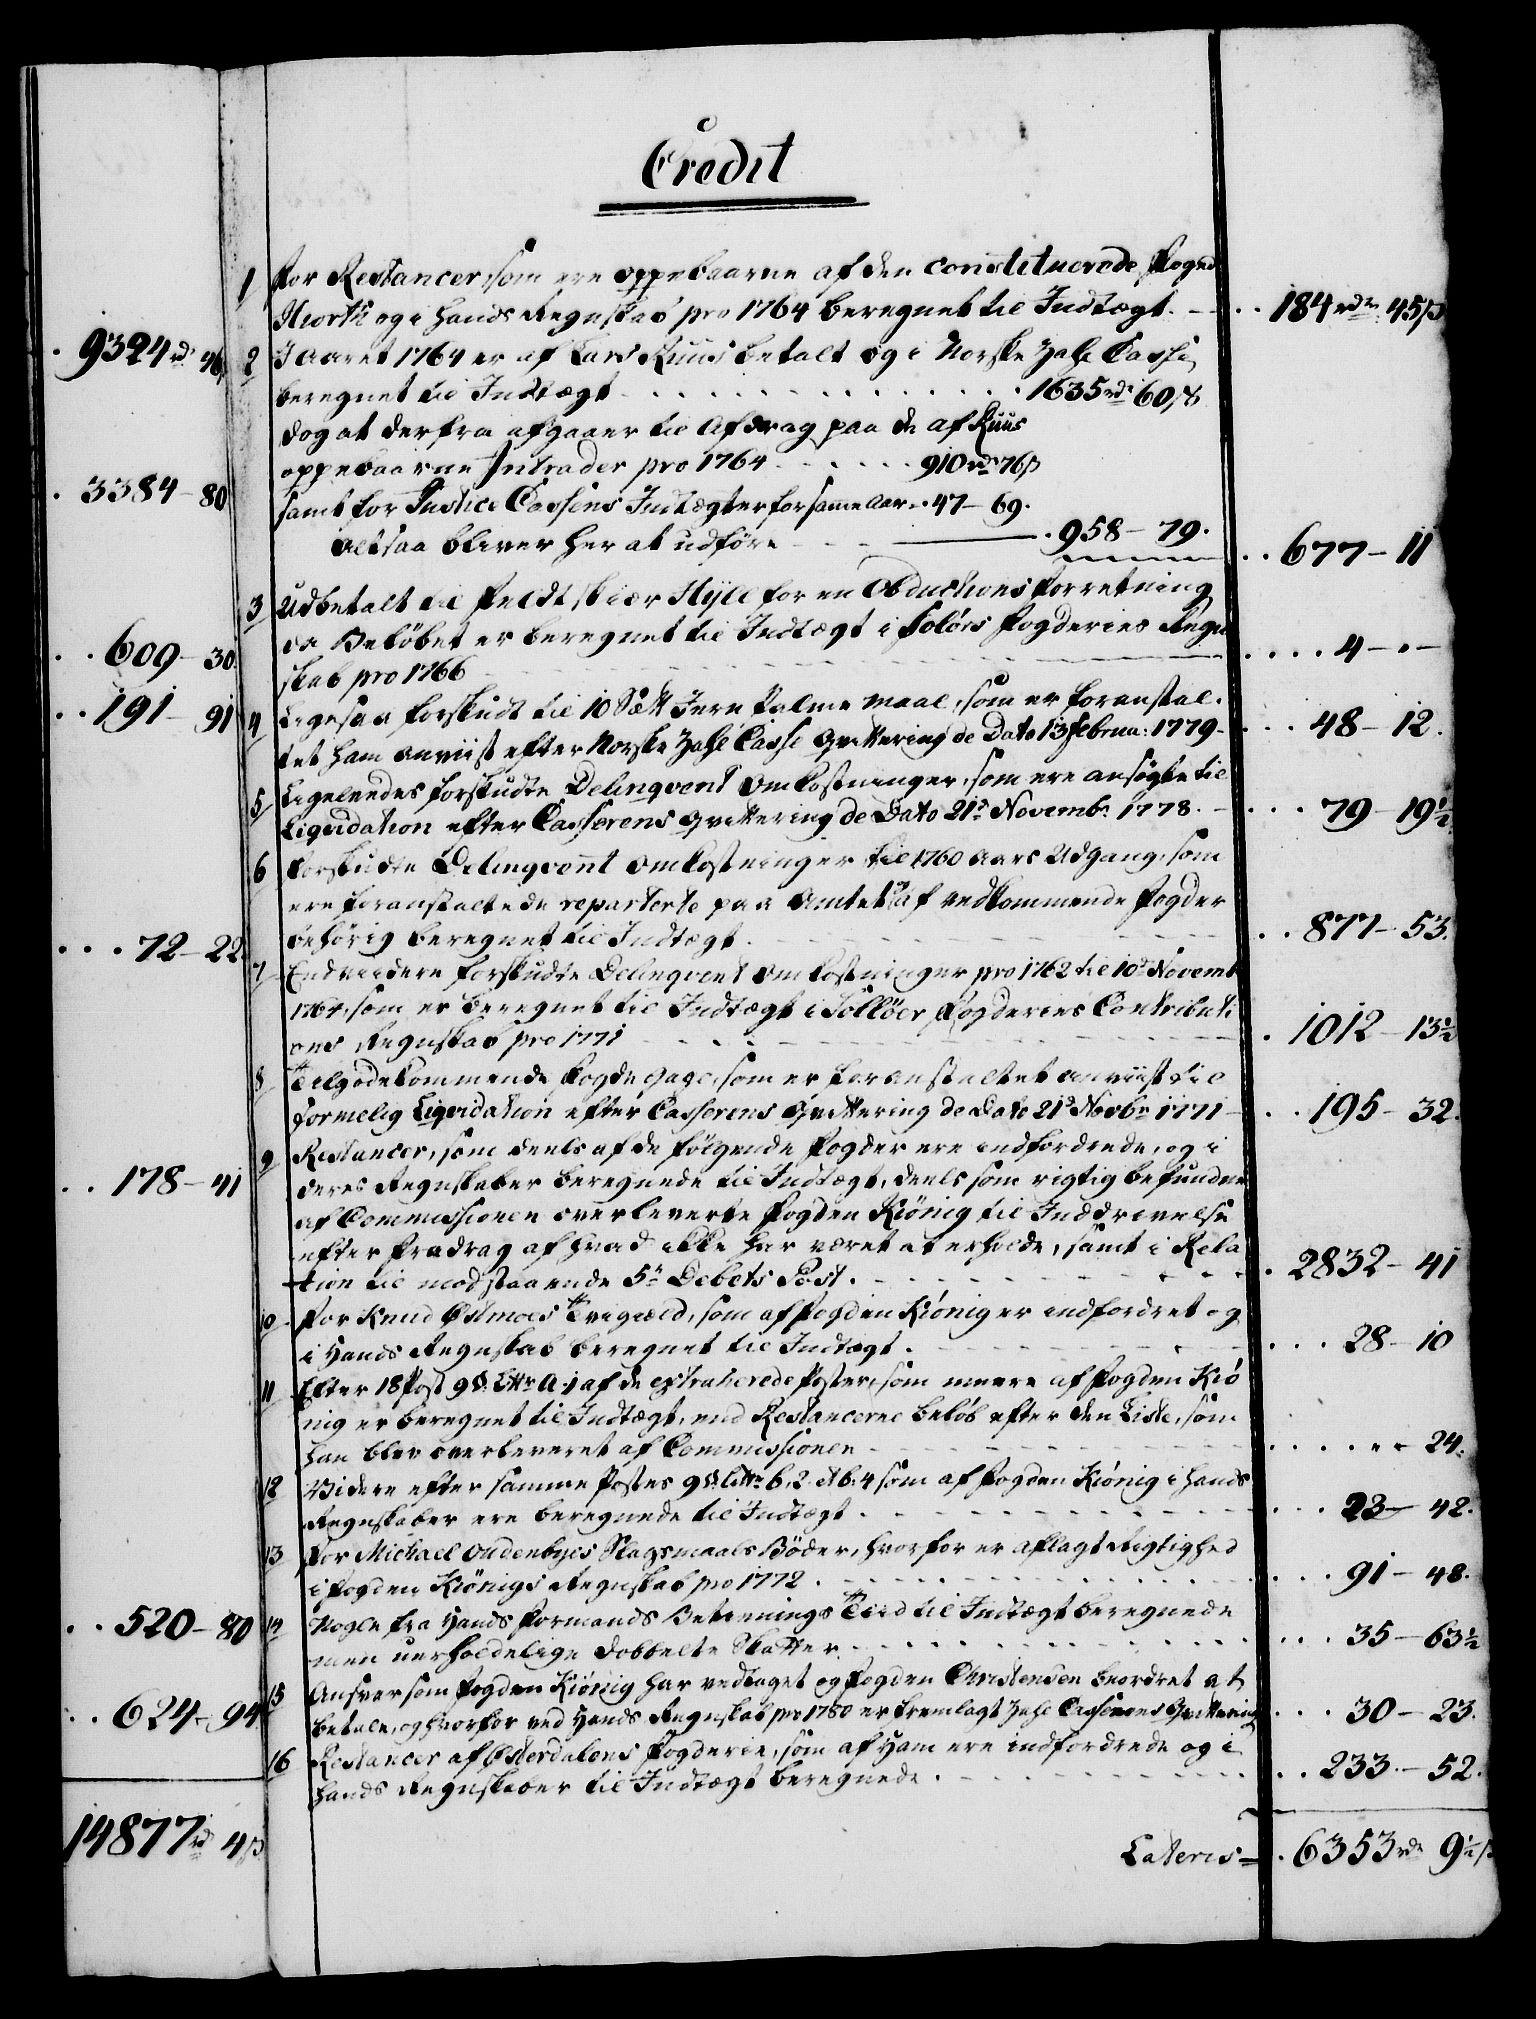 Credit
1 For Restancer, som ere oppebaarne af den constituerede Foged
Hiorth og i Hands Regnskab pro 1764 beregnet til Indtægt. 184 rdr 45 ß
9324 rd 46 ß
2 I Aaret 1764 er af Lars Ruus betalt og i Norske Zahl Casse
beregnet til Indtægt 1635 rdr 60 ß
dog at derfra afgaaer til Afdrag paa de af Ruus
oppebaarne Intrader pro 1764 910 rdr 76 ß
3384 - 80
samt for Justice Cassens Indtægter for samme Aar 47 - 69.
958 - 79.
altsaa bliver her at udføre 677 - 11
3 Udbetalt til Feldtskiær Hyll for en Obductions Forretning
da Beløbet er beregnet til Indtægt i Solørs Fogderies Regn
609 - 30
skab pro 1766 4 - " -
191 - 91
4 Ligesaa forskudt til 10 Sætt Jern Palme maal, som er foranstal-
tet ham anviist efter Norske Zahl Casse Qvittering de Dato 13 Februa: 1779 - 48 - 12.
5 Ligeledes forskudte Delinqvent Omkostninger, som ere ansøgte til
Liqvidation efter Casserens Qvittering de Dato 21de Novembr 1778. - 79 - 19½
6 Forskudte Delinqvent Omkostninger til 1760 Aars Udgang, som
ere foranstaltede reparterte paa Amtet og af vedkommende Fogder
behørig beregnet til Indtægt. 877 - 53.
72 - 22
7 Endviidere forskudte Delinqvent Omkostninger pro 1762 til 10de Novemb
1764, som er beregnet til Indtægt i Solløer Fogderies Contributi
ons Regnskab pro 1771 1012 - 13½
8 Tilgodekommende Fogde Gage, som er foranstaltet anviist til
formelig Liqvidation efter Casserens Qvittering de Dato 21de Novbr 1771 - 195 - 32.
9 Restancer, som deels af de følgende Fogder ere indfordrede, og i
178 - 41
deres Regnskaber beregnede til Indtægt, deels som rigtig befundne
af Commissionen overleverte Fogden Kiönig til Inddrivelse
efter Fradrag af hvad ikke har været at erholde, samt i Rela
tion til modstaaende 5te Debets Post. 2832 - 41
10 For Knud Ostmoes Tvigield, som af Fogden Kiönig er indfordret og
i Hands Regnskab beregnet til Indtægt. 28 - 10
11 Efter 18 Post 9 §. Littr A. j af de extraherede Poster, som meere af Fogden Kiö
nig er beregnet til Indtægt, end Restancerne beløb efter den Liste, som
han blev overleveret af Commissionen " - 24.
12 Videre efter samme Postes 9 §. Littr b. 2. et b. 4 som af Fogden Kiönig i Hands
Regnskaber ere beregnede til Indtægt. 23 - 42.
13 For Michael Oudenbyes Slagsmaals Bøder, hvorfor er aflagt Rigtighed
i Fogden Kiönigs Regnskab pro 1772. 91 - 48.
520 - 80
14 Nogle fra Hands Formands Betienings Tiid til Indtægt beregnede
men uerholdelige dobbelte Skatter. 35 - 63½
15 Ansvar som Fogden Kiönig har vedtaget og Fogden Christensen beordret at
624 - 94
betale, og hvorfor ved Hands Regnskab pro 1780 er fremlagt Zahl Casserens Qvittering 30 - 23.
16 Restancer af Østerdalens Fogderie, som af Ham ere indfordrede og i
Hands Regnskaber til Indtægt beregnede. 233 - 52.
14877 rd 4 ß
Lateris 6353 rdr 9½ ß